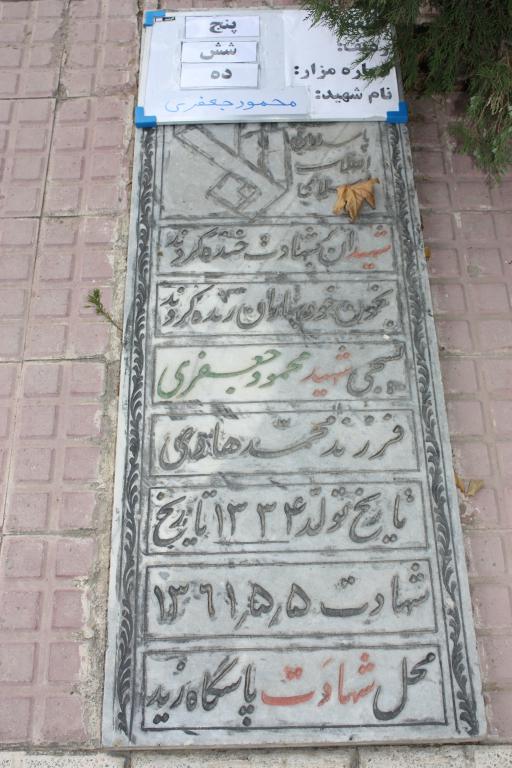 پنج
شش
ده
ردیف:
شماره مزار:
نام شهید: محمود جعفری
پاسداران
انقلاب
اسلامی
شهیدان بشهادت خنده کردند
بخون خود بهاران زنده کردند
بسیجی شهید محمود جعفری
فرزند محمد هادی
تاریخ تولد ۱۳۳۴ تاریخ
شهادت ۱۳۶۱٫۵٫۵
محل شهادت پاسگاه زید